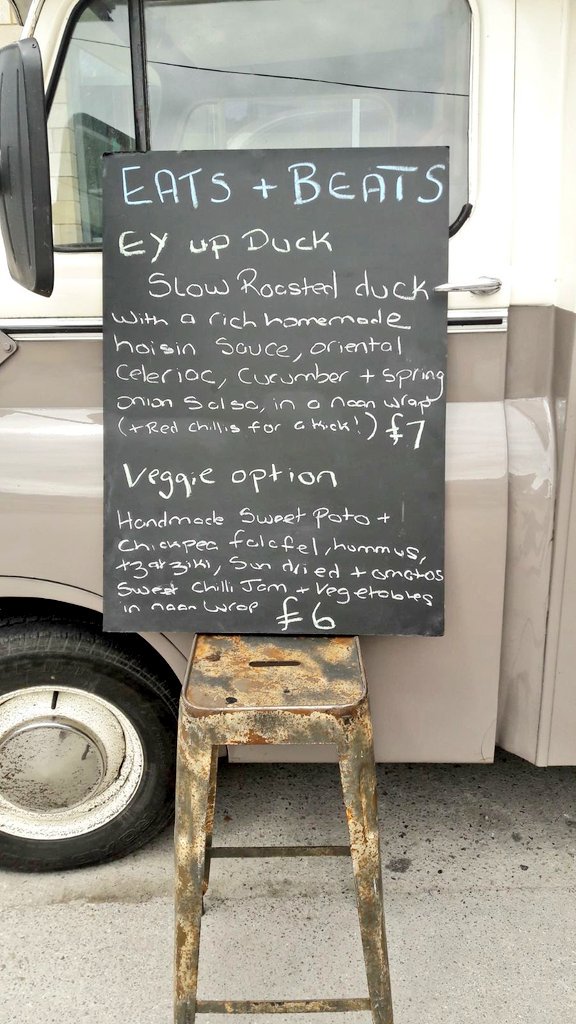 EATS + BEATS
EY up Duck
Slow Roasted duck
with a rich homemade
hoisin Sauce, oriental
Celeriac, Cucumber + spring
onion Salsa, in a naan wrap
(+ Red chillis for a kick!) £7
Veggie option
Handmade Sweet Poto +
Chickpea falafel, hummus,
tzatziki, Sun dried tomatos
Sweet Chilli Jam + vegetables
in naan wrap £6